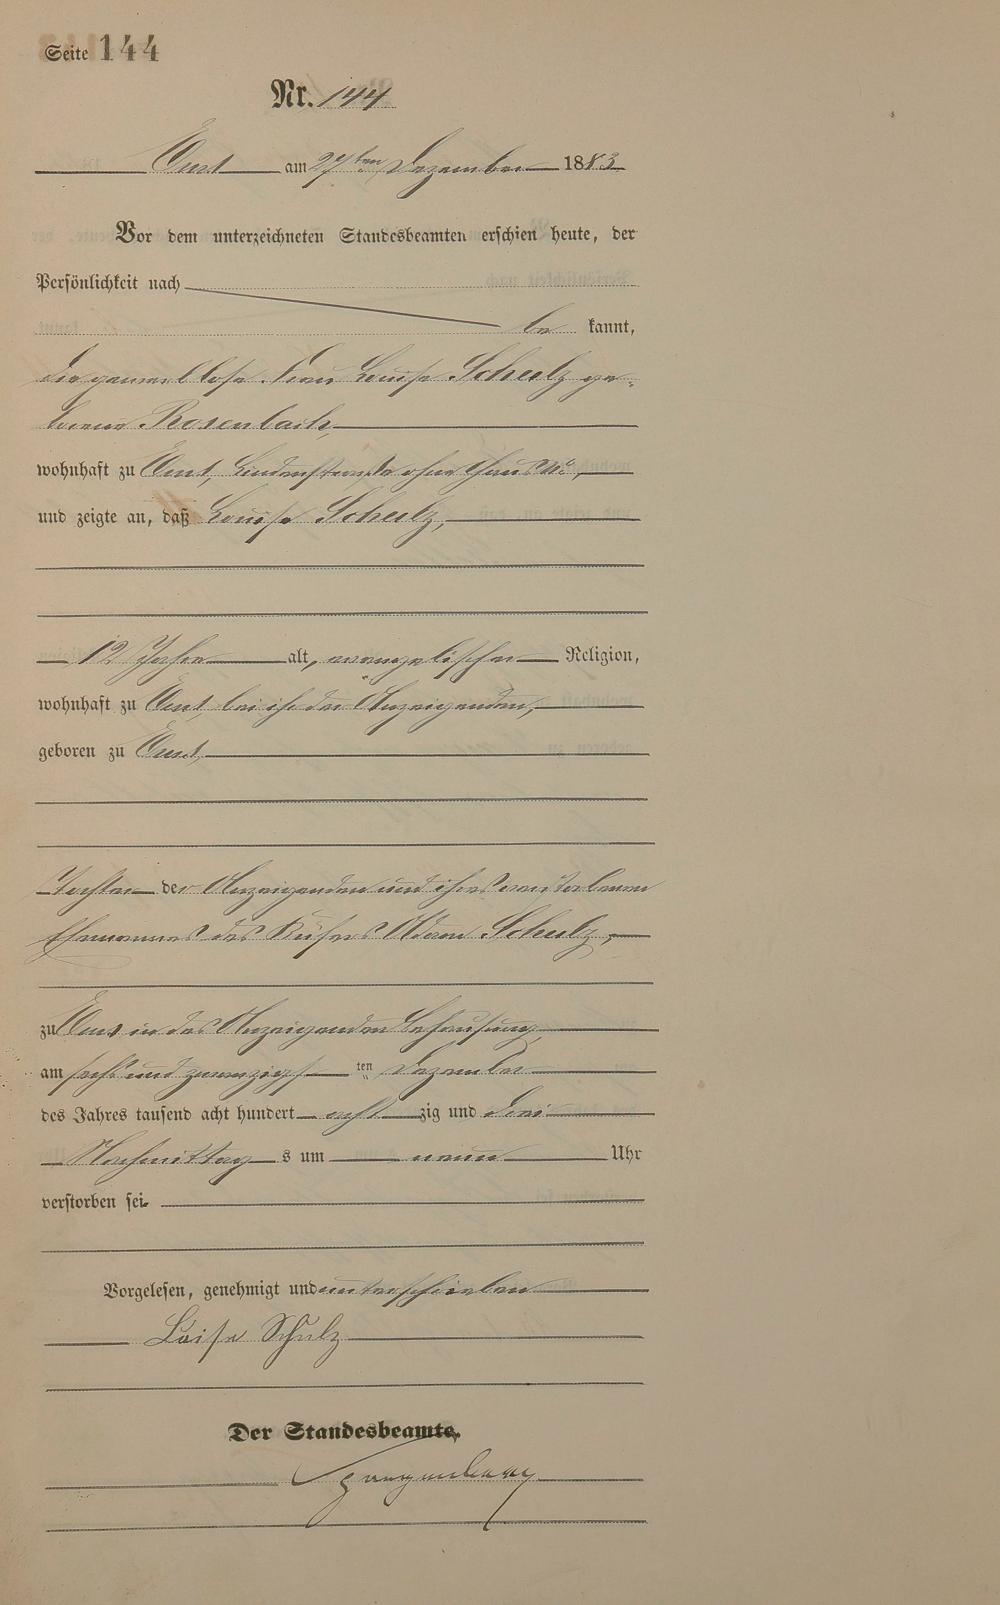 Seite 144
Nr. 144
Ems am 27ten Dezember 1883
Vor dem unterzeichneten Standesbeamten erschien heute, der
Persönlichkeit nach
be kannt,
die gewerblose Frau Louise Schulz ge-
borene Rosenbach,
wohnhaft zu Ems, Lindenstraße ohne Haus No,
und zeigte an, daß Louise Schulz,
12 Jahre alt, evangelischer Religion,
wohnhaft zu Ems, bei ihr der Anzeigenden,
geboren zu Ems,
Tochter der Anzeigenden und ihres verstorbenen
Ehemannes des Küfers Adam Schulz,
zu Ems in der Anzeigenden Behausung,
am sechs und zwanzigs ten Dezember
des Jahres tausend acht hundert acht zig und drei
Nachmittag s um neun Uhr
verstorben sei.
Vorgelesen, genehmigt und unterschrieben
Loise Schulz
Der Standesbeamte.